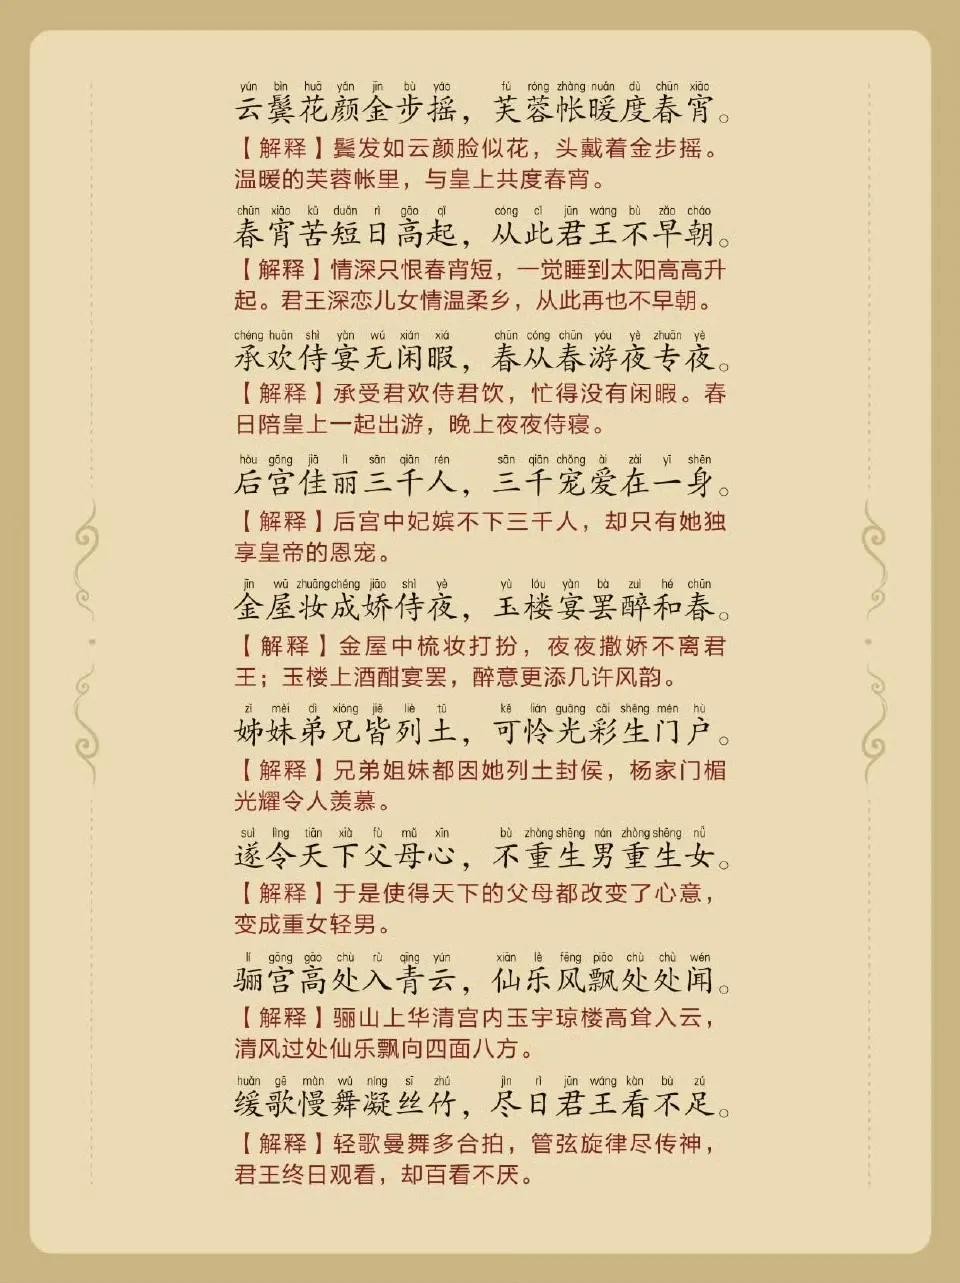 yún bìn huā yán jīn bù yáo fú róng zhàng nuǎn dù chūn xiāo
云鬓花颜金步摇，芙蓉帐暖度春宵。
【解释】鬓发如云颜脸似花，头戴着金步摇。
温暖的芙蓉帐里，与皇上共度春宵。
chūn xiāo kǔ duǎn rì gāo qǐ cóng cǐ jūn wáng bù zǎo cháo
春宵苦短日高起，从此君王不早朝。
【解释】情深只恨春宵短，一觉睡到太阳高高升
起。君王深恋儿女情温柔乡，从此再也不早朝。
chéng huān shì yàn wú xián xiá chūn cóng chūn yóu yè zhuān yè
承欢侍宴无闲暇，春从春游夜专夜。
【解释】承受君欢侍君饮，忙得没有闲暇。春
日陪皇上一起出游，晚上夜夜侍寝。
hòu gōng jiā lì sān qiān rén sān qiān chǒng ài zài yī shēn
后宫佳丽三千人，三千宠爱在一身。
【解释】后宫中妃嫔不下三千人，却只有她独
享皇帝的恩宠。
jīn wū zhuāng chéng jiāo shì yè yù lóu yàn bà zuì hé chūn
金屋妆成娇侍夜，玉楼宴罢醉和春。
【解释】金屋中梳妆打扮，夜夜撒娇不离君
王；玉楼上酒酣宴罢，醉意更添几许风韵。
zǐ mèi dì xiōng jiē liè tǔ kě lián guāng cǎi shēng mén hù
姊妹弟兄皆列土，可怜光彩生门户。
【解释】兄弟姐妹都因她列土封侯，杨家门楣
光耀令人羡慕。
suì lìng tiān xià fù mǔ xīn bù zhòng shēng nán zhòng shēng nǚ
遂令天下父母心，不重生男重生女。
【解释】于是使得天下的父母都改变了心意，
变成重女轻男。
lí gōng gāo chù rù qīng yún xiān lè fēng piāo chù chù wén
骊宫高处入青云，仙乐风飘处处闻。
【解释】骊山上华清宫内玉宇琼楼高耸入云，
清风过处仙乐飘向四面八方。
huǎn gē màn wǔ níng sī zhú jìn rì jūn wáng kàn bù zú
缓歌慢舞凝丝竹，尽日君王看不足。
【解释】轻歌曼舞多合拍，管弦旋律尽传神，
君王终日观看，却百看不厌。